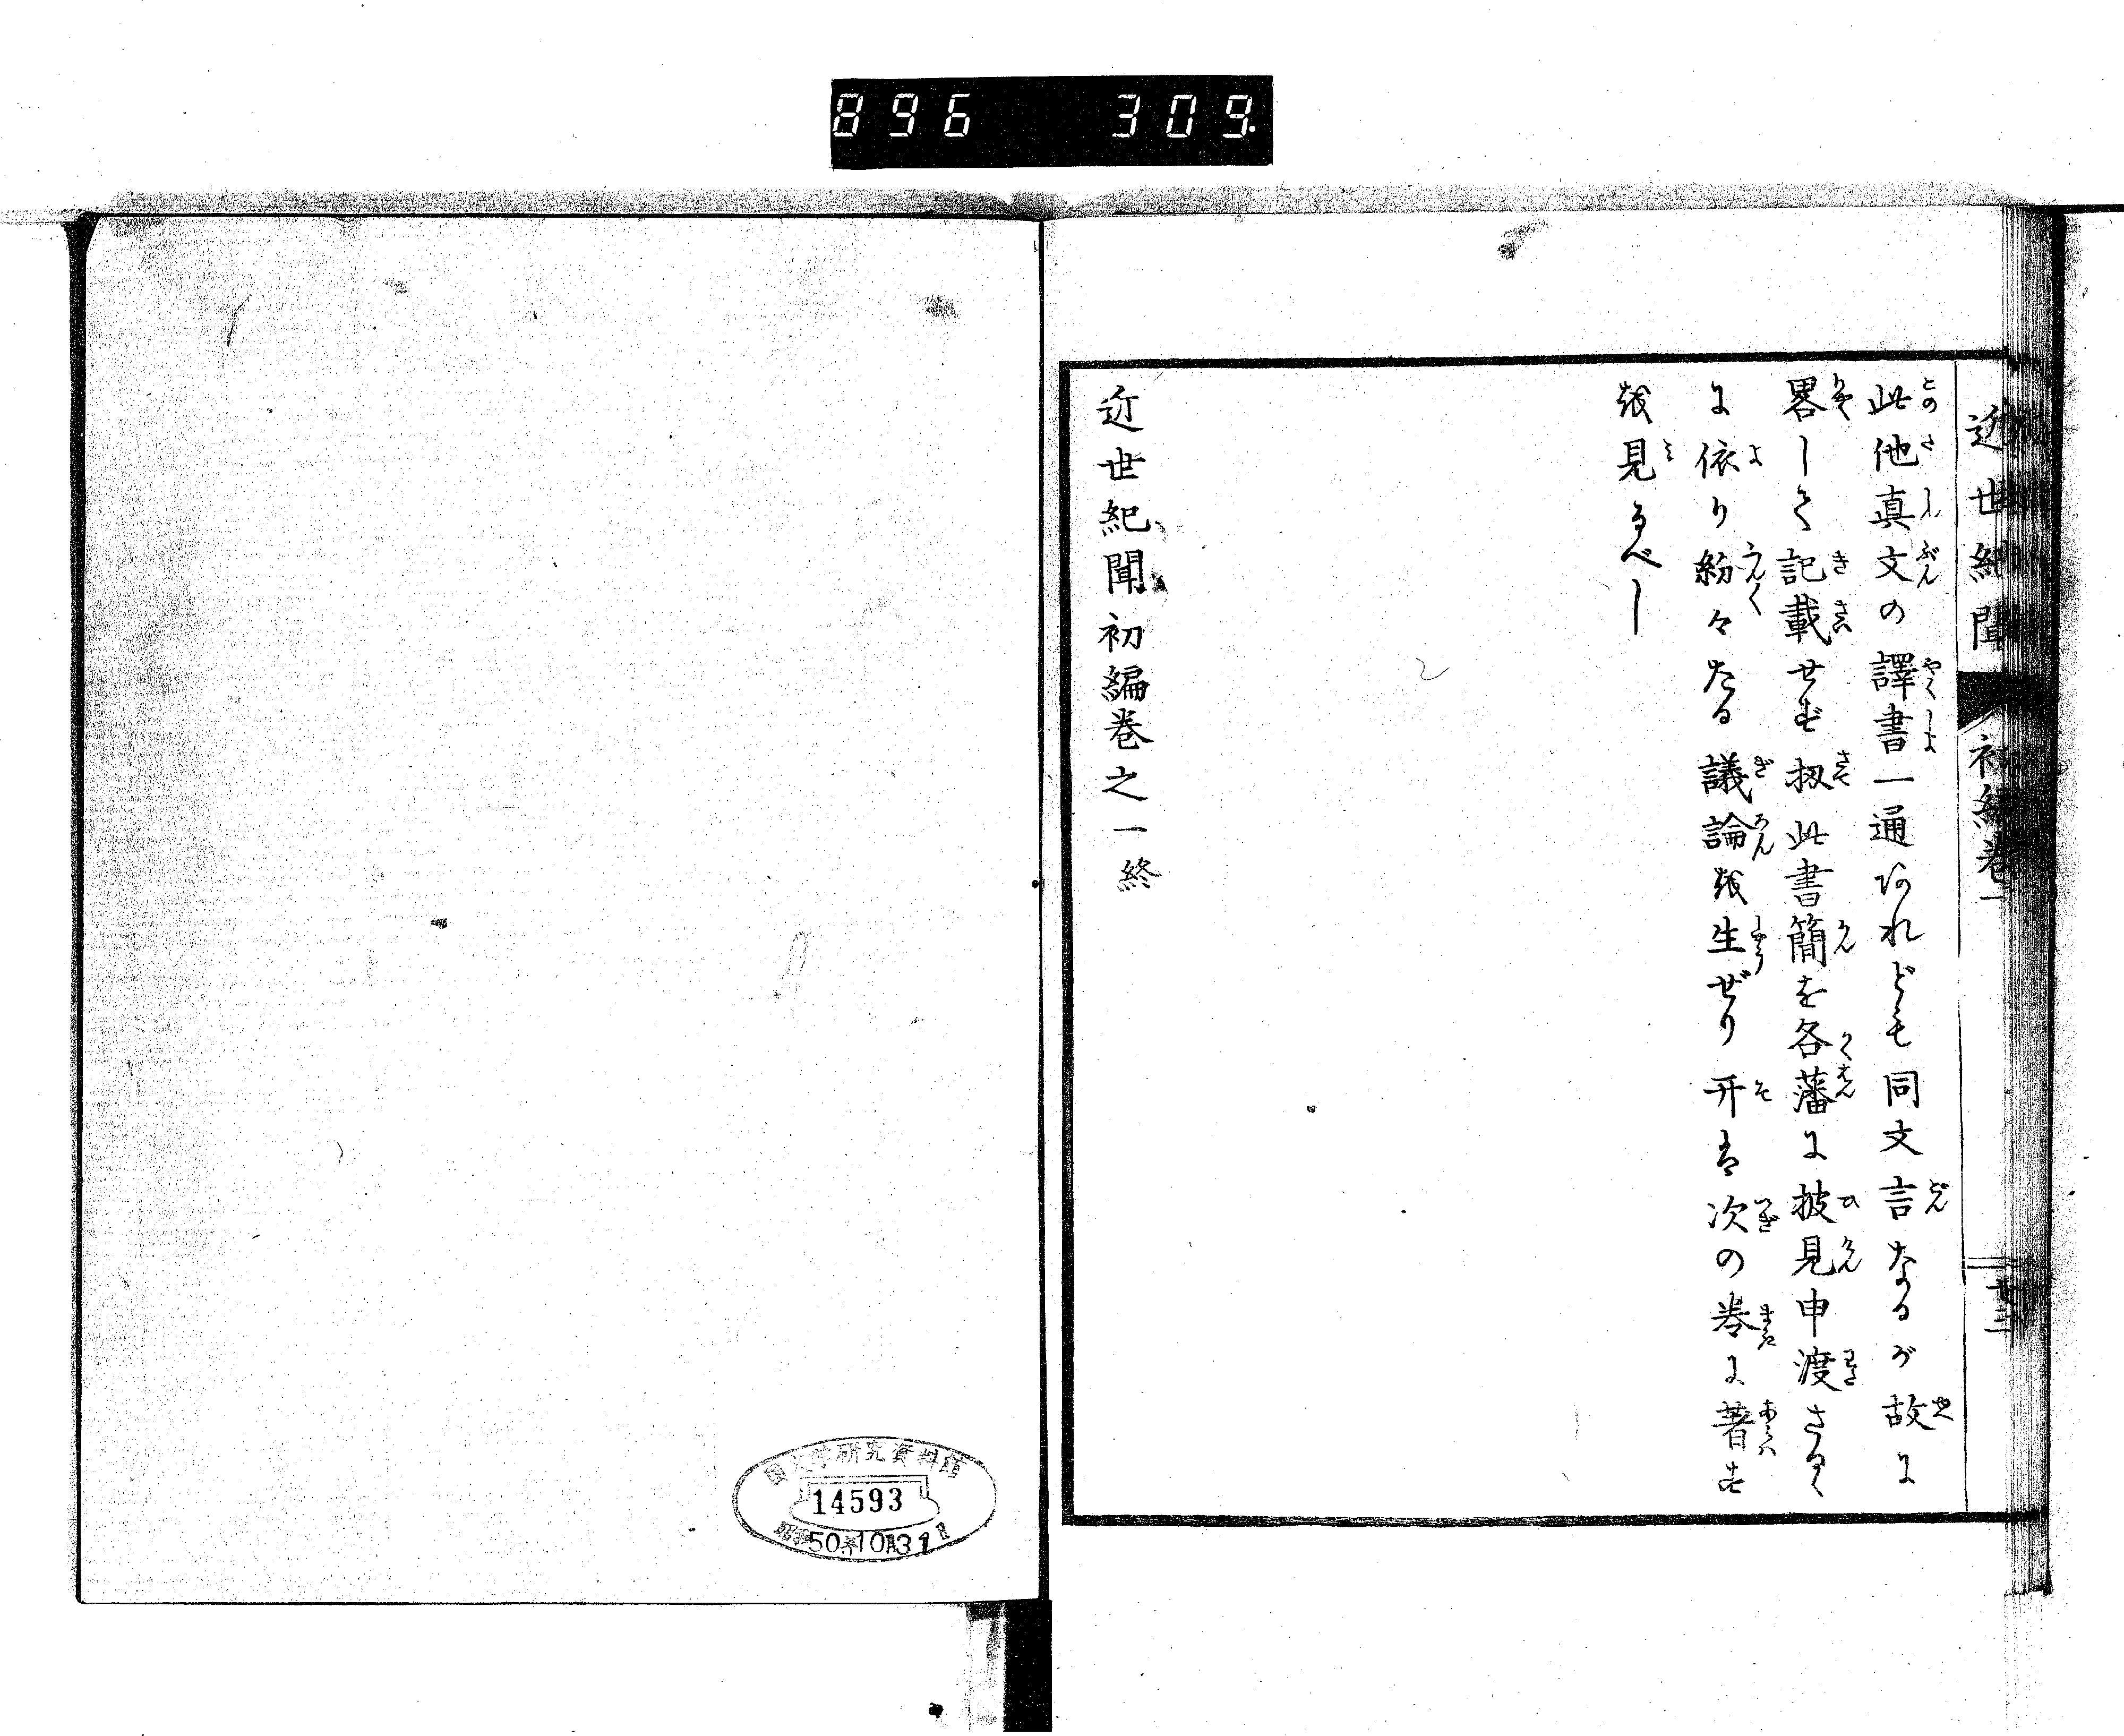 896 309.
近世紀聞 初編巻一 廿三
此他真文の譯書一通あれども同文言なるが故に
畧して記載せず扨此書簡を各藩に披見申渡さるゝ
に依り紛々たる議論を生ぜり开は次の巻に著す
を見るべし
近世紀聞初編巻之一終
国文学研究資料館
14593
昭和50年10月31日